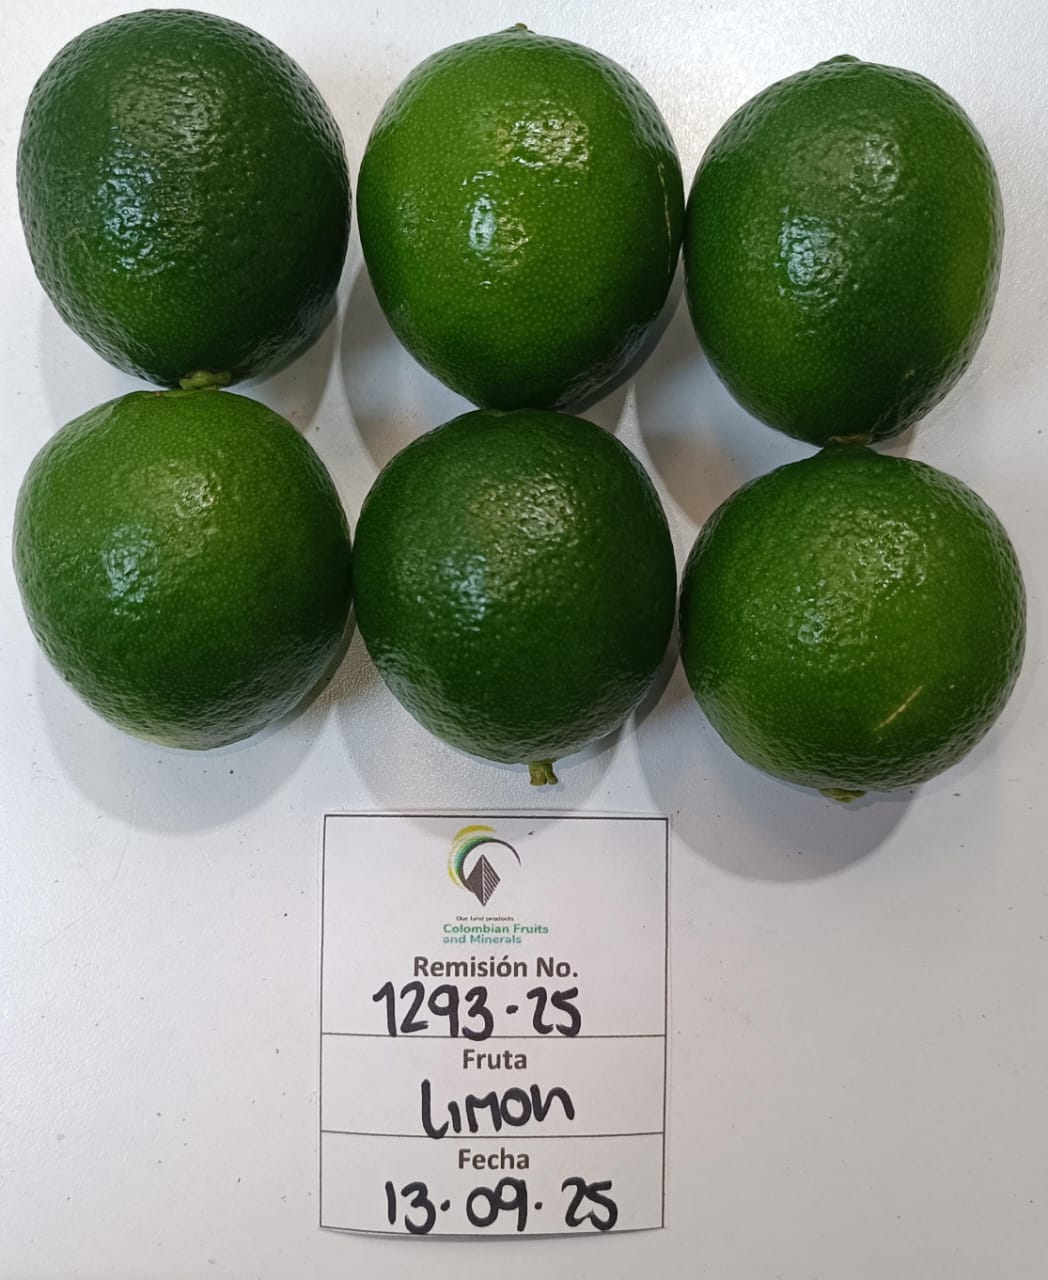 Our land products
Colombian Fruits
and Minerals
Remisión No.
1293-25
Fruta
Limon
Fecha
13.09.25